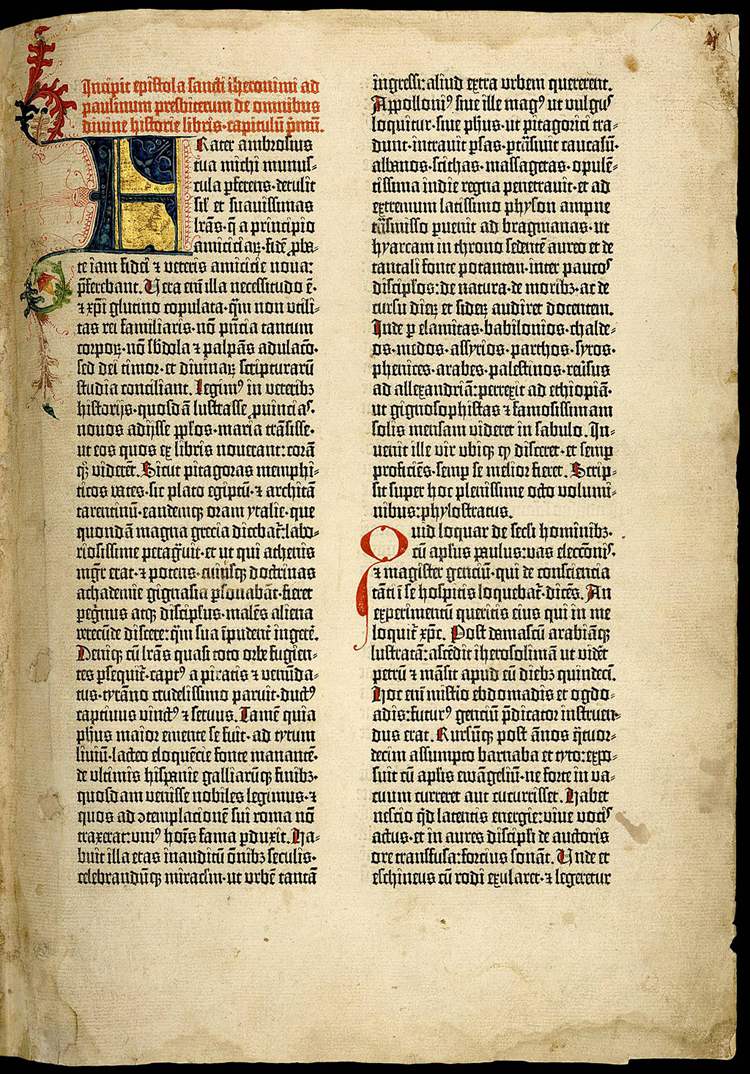 Incipit epistola sancti iheronimi ad
paulinum presbiterum de omnibus
divine historie libris·capitulū p̄mū.
Frater ambrosius
tua michi munus-
cula ꝑferens·detulit
sil̄ et suavissimas
lr̄as·q̄ a principio
amiciciaꝝ·fidē ꝓba-
te iam fidei ⁊ veteris amicicie nova:
p̄ferebant. Vera eni̅ illa necessitudo ē·
⁊ xp̄i glutino copulata·qm̄ non utili-
tas rei familiaris·nō p̄ncia tantum
corpoꝝ·nō sb̄dola ⁊ palpās adulac̄o·
sed dei timor·et divinaꝝ scripturarū
studia conciliant. Legimꝰ in veteribꝫ
historijs·quosdā lustrasse ꝓuinciaꝰ·
novos adijsse pp̄los·maria trāsisse·
ut eos quos ex libris noverant: corā
qꝫ viderēt. Sicut pitagoras memphi-
ticos vates·sic plato egiptū·⁊ architā
tarentinū·eandemqꝫ oram ytalie·que
quondā magna grecia dicebat̄: labo-
riosissime peragͣuit·et ut qui athenis
mgr̄ erat·⁊ potens·cuiusqꝫ doctrinas
achademie gignasia ꝑsonabāt·fieret
peg̍nus atqꝫ discipulus·malēs aliena
verecūde discere: qm̄ sua īpudent̄ ingerē.
Deniqꝫ cū lr̄as quasi toto orbe fugien-
tes ꝑsequit̄·captꝰ a piratis ⁊ venūda-
tus·tyrāno crudelissimo paruit·ductꝰ
captivus vinctꝰ ⁊ servus. Tamē quia
ph̄us maior emente se fuit·ad tytum
liviū·lacteo eloquēcie fonte manantē·
de ultimis hispanie galliarūqꝫ finibꝫ·
quosdam venisse nobiles legimus·⁊
quos ad ↄtemplacionē sui roma nō
traxerat: uniꝰ hoīs fama ꝑduxit. Ha-
buit illa etas inauditū ōnibꝫ seculis·
celebrandūqꝫ miraclm̄·ut urbē tantā
ingressi: aliud extra urbem quererent.
Appolloniꝰ sive ille magꝰ ut vulgꝰ
loquitur·sive ph̄us·ut pitagorici tra-
dunt·intravit ꝑsas·ꝑtrāsivit caucasū·
albanos·scithas·massagetas·opulē-
tissima indie regna penetravit·et ad
extremum latissimo physon ampne
trāsmisso ꝑvenit ad bragmanas·ut
hyarcam in throno sedentē aureo et de
tantali fonte potantem·inter paucos
discipl̄os: de natura·de moribꝫ·ac de
cursu dieꝝ et sideꝝ audiret docentem.
Inde ꝑ elamitas·babilonios·chalde-
os·medos·assyrios·parthos·syros·
phenices·arabes·palestinos·rev̄sus
ad allexandriā: perrexit ad ethiopiā·
ut gignosophistas ⁊ famosissimam
solis mensam videret in sabulo. In-
venit ille vir ubiqꝫ qꝫ disceret·et semꝑ
proficiēs·semꝑ se melior fieret. Scrip-
sit super hoc plenissime octo volumi-
nibus: phylostratus.
Quid loquar de secl̄i hominibꝫ·
cū apl̄us paulus: vas elecc̄onis·
⁊ magister genciū·qui de consciencia
tāti ī se hospitis loquebat̄·dicēs. An
experimentū queritis eius qui in me
loquit̄ xp̄c. Post damascū arabiāqꝫ
lustratā: ascēdit iherosolimā ut vidēt
petrū ⁊ māsit apud eū diebꝫ quindecī.
Hoc eni̅ misterio ebdomadis et ogdo-
adis: futurꝰ genciū p̄dicator instruen-
dus erat. Rursūqꝫ post ānos q̄tuor-
decim assumpto barnaba et tyto: expo-
suit cū apl̄is ewāgeliū·ne forte in va-
cuum curreret aut cucurrisset. Habet
nescio qd̄ latentis energie: vive vocis
actus·et in aures discipli de auctoris
ore transfusa: forcius sonāt. Unde et
eschineus cū rodi exularet·⁊ legeretur